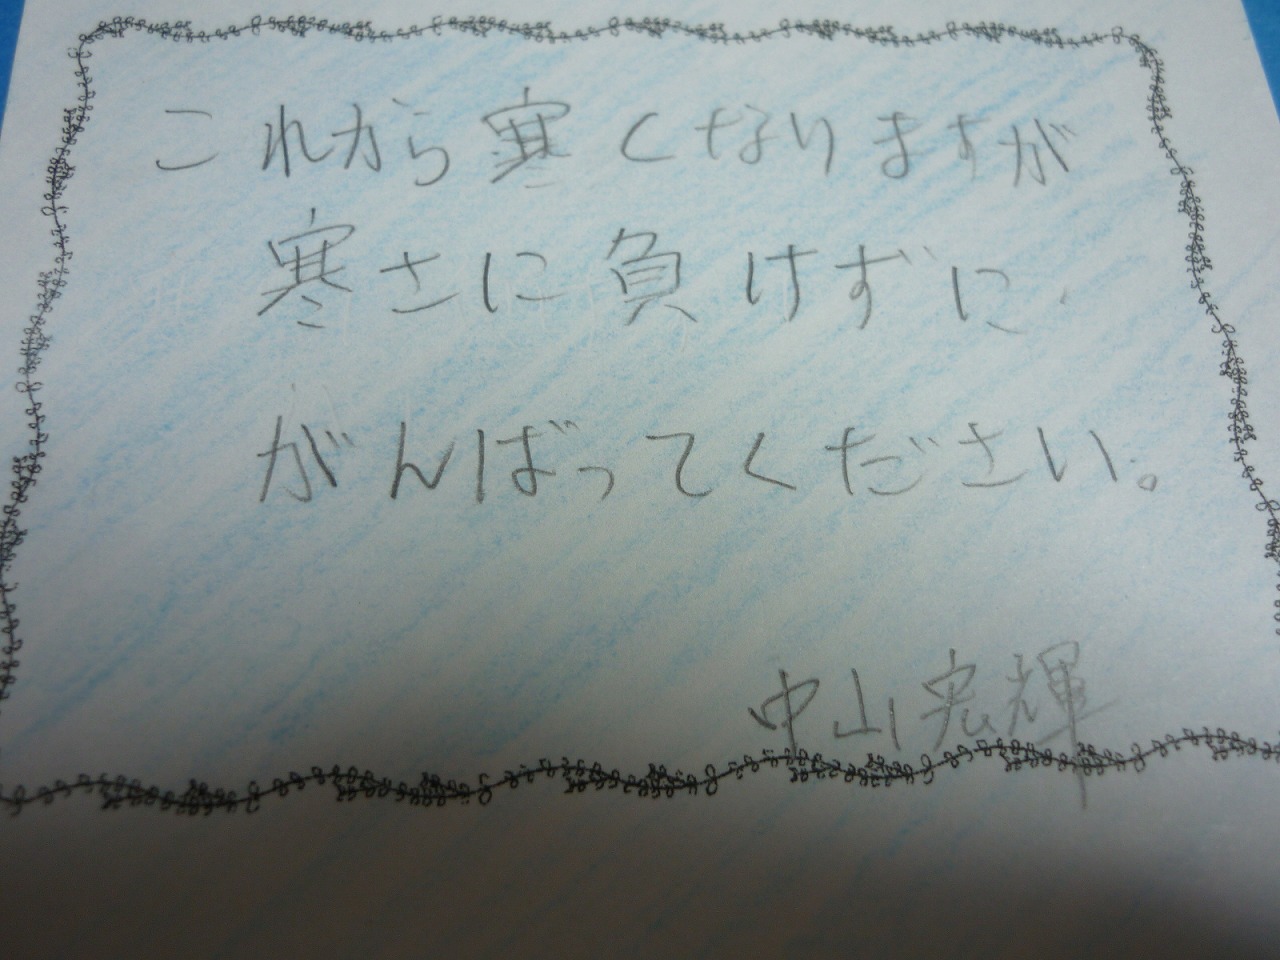 これから寒くなりますが
寒さに負けずに
がんばってください。
中山宏輝